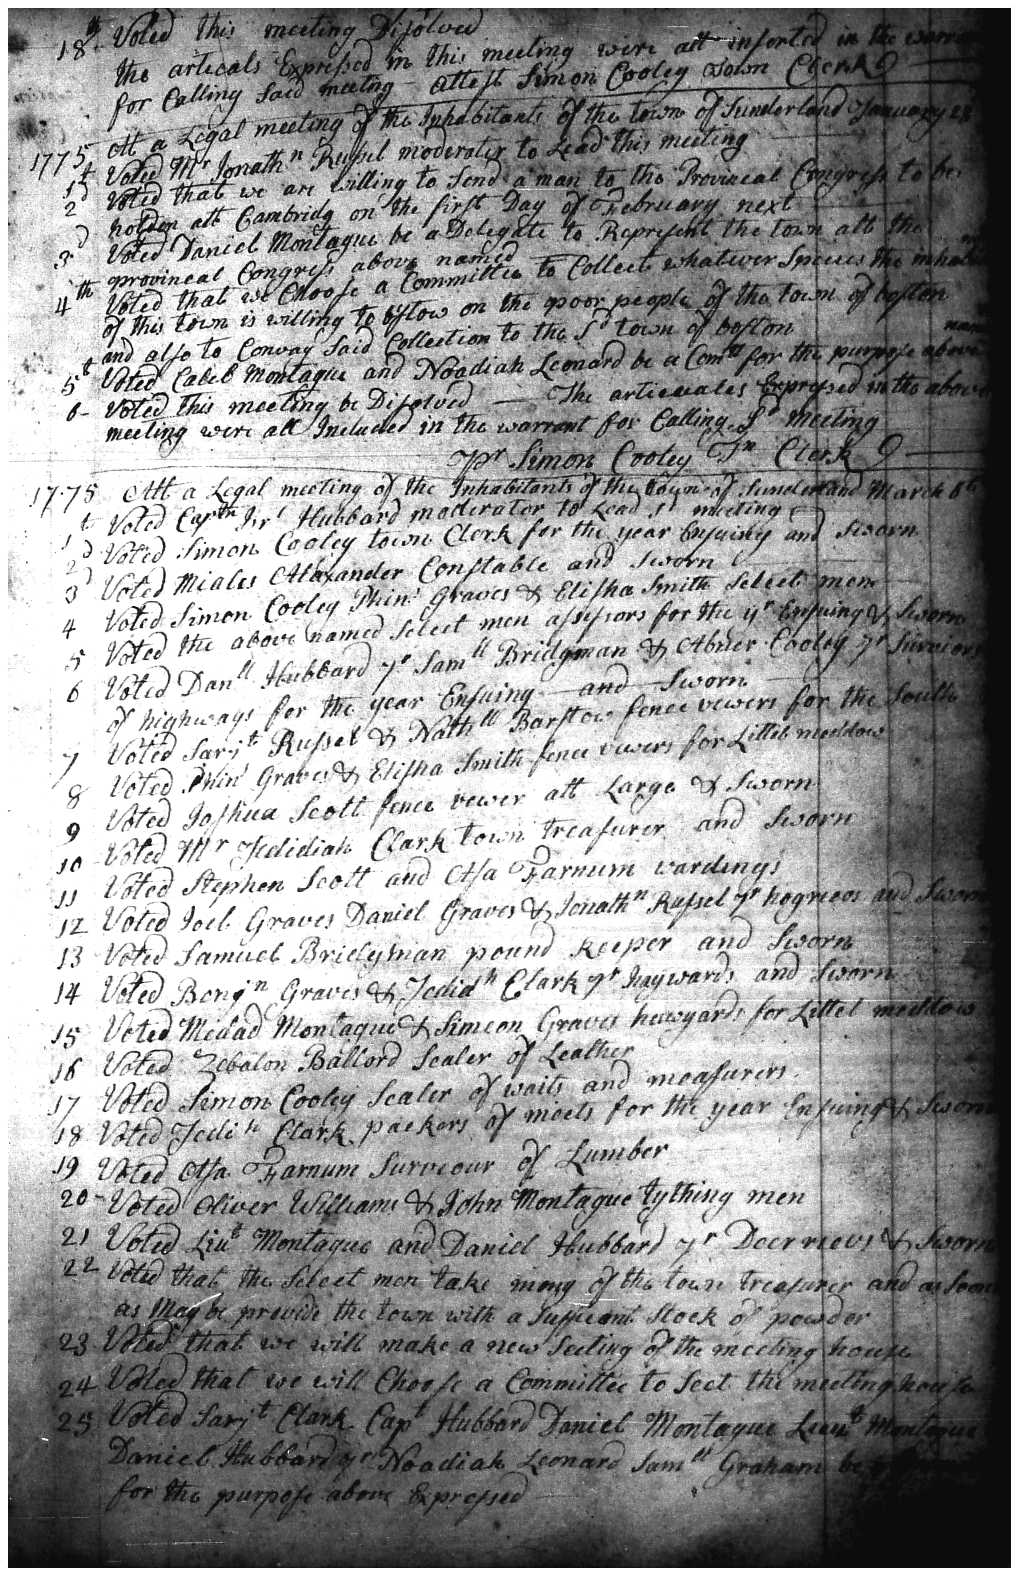 18ly Voted this meeting Disolved
the articals Expressed in this meeting were all inserted in the warrant
for Calling Said meetng Attest Simon Cooley Town Clerk
1775 Att a Legal meeting of the Inhabitants of the town of Sunderland January 23
1t Voted Mr Jonathn Russel moderater to Lead this meeting
2d Voted that we are willing to Send a man to the Provincal Congress to be
holden att Cambridg on the first Day of February next
3d Voted Daniel Montague be a Delegate to Represent the town att the
provineal Congress above named
4th Voted that we Choose a Committee to Collect whatever Speices the inhabi
of this town is willing to bstow on the poor people of the town of boston
and also to Convay Said Collection to the Sd town of boston
5t Voted Caleb Montague and Noadiah Leonard be a Comtt for the purpose above named
6 Voted this meeting be Disolved The articuales Expressed in the above
meeting were all Included in the warrant for Calling Sd meeting
Pr Simon Cooley Tn Clerk
1775 Att a Legal meeting of the Inhabitants of the town of Sunderland March 6th
1t Voted Captn Hubbard moderator to Lead Sd meeting
2d Voted Simon Cooley town Clerk for the year Ensuing and Sworn
3d Voted Miales Alaxander Constable and Sworn
4 Voted Simon Cooley Phins Graves & Elisha Smith Select men
5 Voted the above named Select men assessors for the yr Ensuing & Sworn
6 Voted Danll Hubbard yr Samll Bridgman & Abner Cooley yr Surviors
of highways for the year Ensuing and Sworn
7 Voted Sarjt Russel & Nathll Barstow fence vewers for the South
8 Voted Phins Graves & Elisha Smith fence vewers for Littel meddow
9 Voted Joshua Scott fence vewer att Large & Sworn
10 Voted Mr Jedidiah Clark town treasurer and Sworn
11 Voted Stephen Scott and Asa Farnum wardings
12 Voted Joel Graves Daniel Graves & Jonathn Russel yr hogreevs and Sworn
13 Voted Samuel Bridgman pound keeper and Sworn
14 Voted Benjn Graves & Jedidh Clark yr haywards and Sworn
15 Voted Medad Montague & Simeon Graves hewyards for Littel meddow
16 Voted Zebalon Ballord Sealer of Leather
17 Voted Simon Cooley Sealer of waits and measurers
18 Voted Jedih Clark packers of meets for the year Ensuing & Sworn
19 Voted Asa Farnum Surveour of Lumber
20 Voted Oliver Williams & John Montague tything men
21 Voted Liut Montague and Daniel Hubbard yr Deerreevs & Sworn
22 Voted that the Select men take mony of the town treasurer and as Soon
as May be provide the town with a Suffient Stock of powder
23 Voted that we will make a new Seeting of the meeting house
24 Voted that we will Choose a Committee to Seet the meeting house
25 Voted Sarjt Clark Capt Hubbard Daniel Montague Lieut Montague
Daniel Hubbard yr Noadiah Leonard Samll Graham be
for the purpose above Expressed